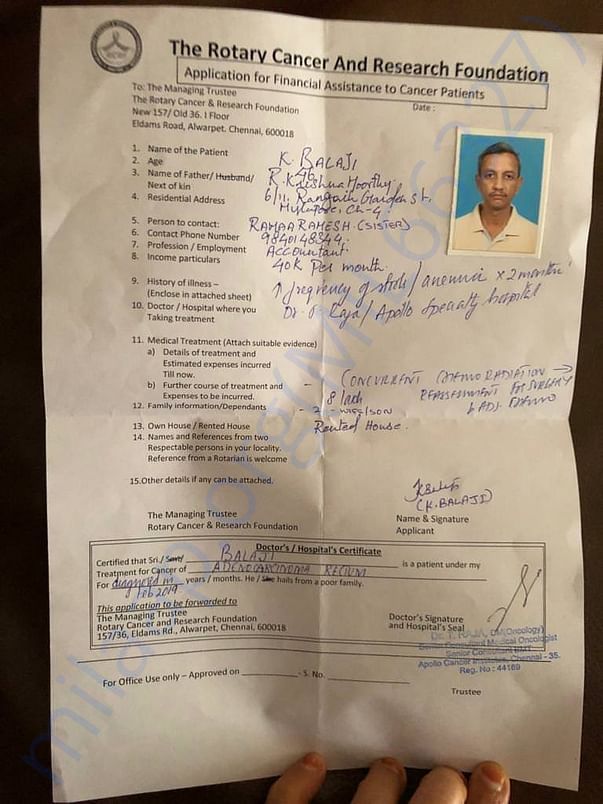 The Rotary Cancer And Research Foundation
Application for Financial Assistance to Cancer Patients
To: The Managing Trustee
Date :
The Rotary Cancer & Research Foundation
New 157/ Old 36. I Floor
Eldams Road, Alwarpet. Chennai, 600018
1. Name of the Patient K. BALAJI
2. Age 46
3. Name of Father/ Husband/ R. Krishna Moorthy
Next of kin
4. Residential Address 6/11, Rangaiah Garden St.
Mylapore, Ch-4
5. Person to contact: RAMAA RAMESH (SISTER)
6. Contact Phone Number 9840148344
7. Profession / Employment Accountant
8. Income particulars 40K Per month.
9. History of illness – ↑ frequency of stools / anemia x 2 months
(Enclose in attached sheet)
10. Doctor / Hospital where you Dr. T. Raja / Apollo Specialty hospital
Taking treatment
11. Medical Treatment (Attach suitable evidence)
a) Details of treatment and
Estimated expenses incurred
Till now.
b) Further course of treatment and – CONCURRENT CHEMORADIATION →
Expenses to be incurred. 8 lakh REASSESSMENT FOR SURGERY
& ADJ. CHEMO
12. Family information/Dependants - 2 - wife/son
13. Own House / Rented House Rented House.
14. Names and References from two
Respectable persons in your locality.
Reference from a Rotarian is welcome
15.Other details if any can be attached.
(K. BALAJI)
The Managing Trustee
Name & Signature
Rotary Cancer & Research Foundation
Applicant
Doctor's / Hospital's Certificate
Certified that Sri./ Smt/ BALAJI is a patient under my
Treatment for Cancer of ADENOCARCINOMA RECTUM
For diagnosed in years / months. He / She hails from a poor family.
Feb 2019
This application to be forwarded to
The Managing Trustee
Rotary Cancer and Research Foundation
157/36, Eldams Rd., Alwarpet, Chennai, 600018
Doctor's Signature
and Hospital's Seal
Dr. T. RAJA, DM(Oncology)
Senior Consultant Medical Oncologist
Senior Consultant BMT
Apollo Cancer Institutes, Chennai - 35.
Reg. No : 44169
For Office Use only – Approved on - S. No.
Trustee